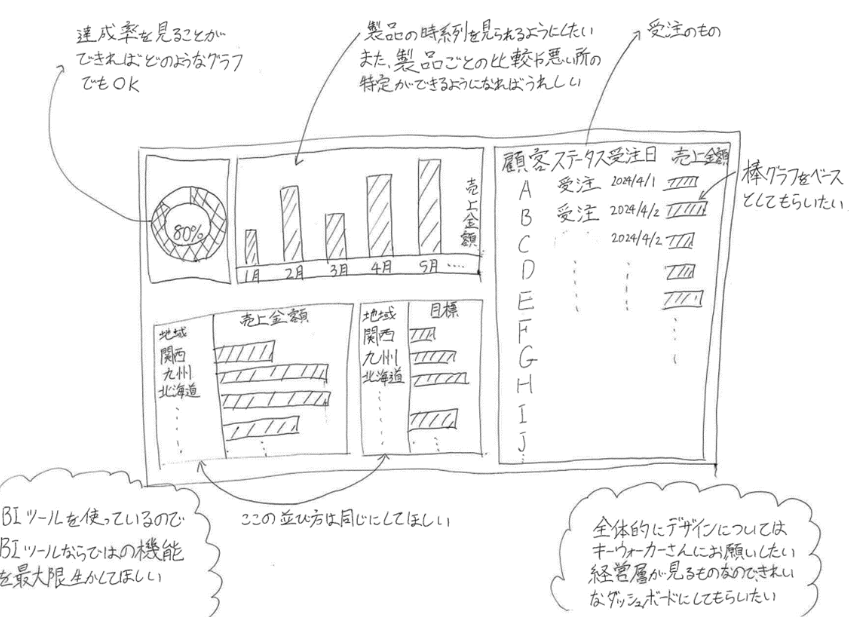 達成率を見ることが
できればどのようなグラフ
でもOK
製品の時系列を見られるようにしたい
また、製品ごとの比較や悪い所の
特定ができるようになればうれしい
受注のもの
80%
売上金額
1月 2月 3月 4月 5月 ····
顧客 ステータス 受注日 売上金額
A 受注 2024/4/1
B 受注 2024/4/2
C 2024/4/2
D
E
F
G
H
I
J
棒グラフをベース
としてもらいたい
地域 売上金額
関西
九州
北海道
地域 目標
関西
九州
北海道
ここの並び方は同じにしてほしい
BIツールを使っているので
BIツールならではの機能
を最大限生かしてほしい
全体的にデザインについては
キーウォーカーさんにお願いしたい
経営層が見るものなのできれい
なダッシュボードにしてもらいたい